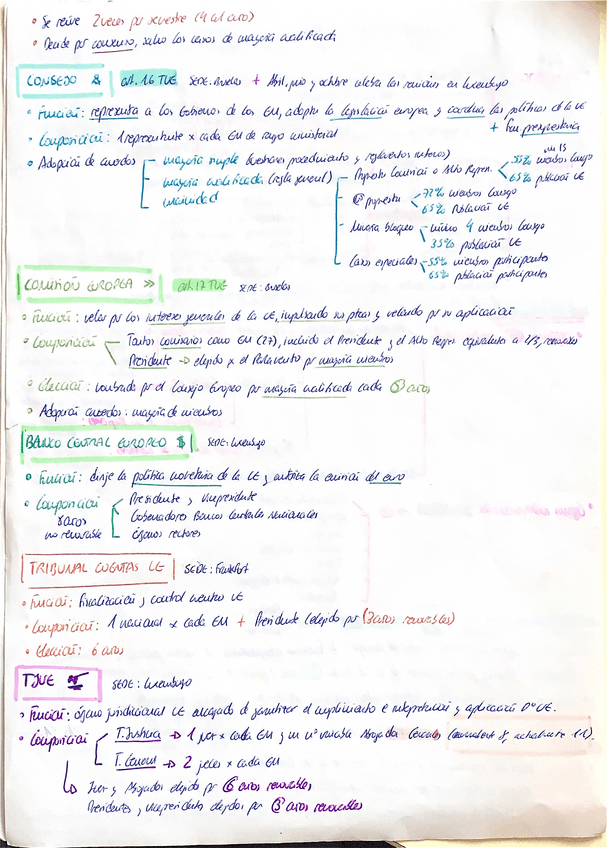 • Se reúne 2 veces por semestre (4 al año)
• Decide por consenso, salvo los casos de mayoría cualificada
CONSEJO art. 16 TUE SEDE: Bruselas + Abril, junio y octubre celebra las reuniones en Luxemburgo
• Función: representa a los Gobiernos de los EM, adopta la legislación europea y coordina las políticas de la UE
+ Fun presupuestaria
• Composición: 1 representante x cada EM de rango ministerial
• Adopción de acuerdos
mayoría simple (cuestiones procedimiento y reglamentos internos)
mayoría cualificada (regla general)
unanimidad
Propuesta Comisión o Alto Repren.
55% miembros Consejo
65% población UE
propuesta
72% miembros Consejo
65% Población UE
Minoría bloqueo
mínimo 4 miembros Consejo
35% población UE
Casos especiales
55% miembros participantes
65% población participantes
COMISIÓN EUROPEA >> art. 17 TUE SEDE: Bruselas
• Función: velar por los intereses generales de la UE, impulsando su y velando por su aplicación
• Composición
Tantos comisarios como EM (27), incluido el Presidente y el Alto Repre equivalente a 2/3,
Presidente → elegido x el Parlamento por mayoría miembros
• Elección: nombrada por el Consejo Europeo por mayoría cualificada cada 5 años
• Adopción acuerdos: mayoría de miembros
BANCO CENTRAL EUROPEO $ SEDE: Luxemburgo
• Función: dirije la política monetaria de la UE y autoriza la emisión del euro
• Composición
8 años
no renovable
Presidente y Vicepresidente
Gobernadores Bancos Centrales Nacionales
órganos rectores
TRIBUNAL CUENTAS UE SEDE: Frankfurt
• Función: fiscalización y control cuentas UE
• Composición: 1 nacional x cada EM + Presidente (elegido por 3 años renovables)
• Elección: 6 años
TJUE SEDE: Luxemburgo
• Función: órgano jurisdiccional UE encargado de garantizar el cumplimiento e interpretación y aplicación Dº UE.
• Composición
T. Justicia → 1 juez x cada EM y un nº variable Abogados Generales (actualmente 11).
T. General → 2 jueces x cada EM
Juez y Abogados elegido por 6 años renovables
Presidentes y Vicepresidentes elegidos por 3 años renovables